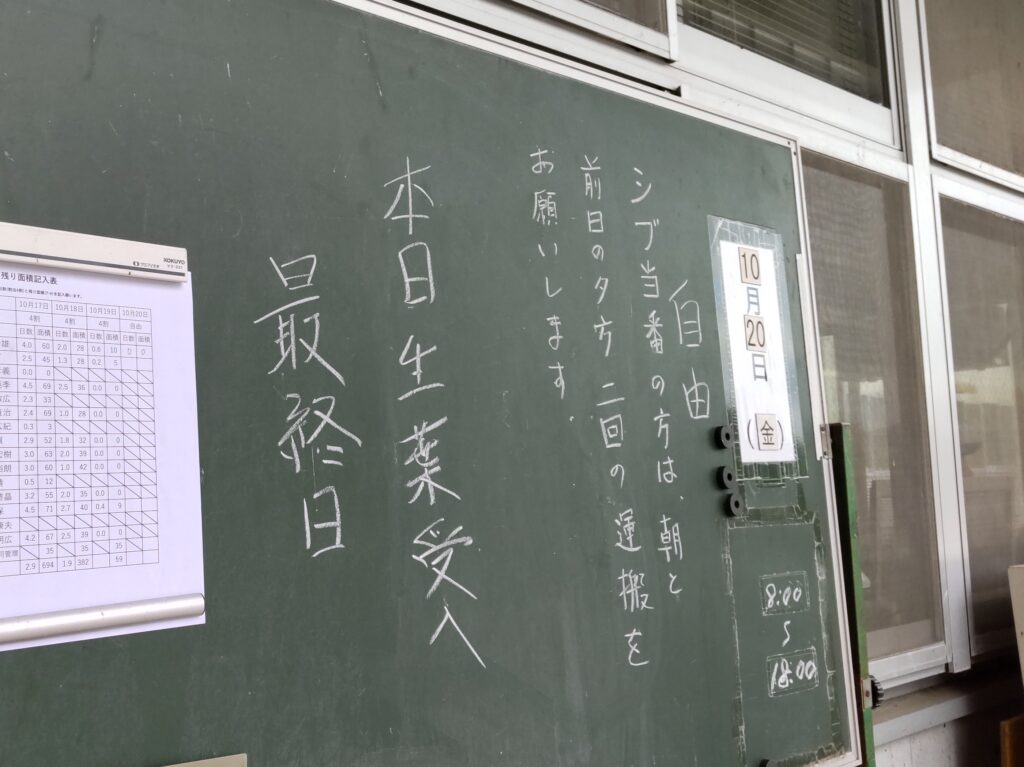 10月20日(金)
8:00
〜
18:00
自由
シブ当番の方は、朝と
前日の夕方二回の運搬を
お願いします.
本日生葉受入
最終日
KOKUYO
残り面積記入表
10月17日 10月18日 10月19日 10月20日
4割 4割 4割 自由
日数 面積 日数 面積 日数 面積 日数 面積
雄 4.0 60 2.0 28 0.6 10 0 0
2.5 45 1.3 28 0.2 5
義 0.0 0
季 4.5 69 2.5 36 0.0 0
広 2.3 33
治 2.4 69 1.0 28 0.0 0
紀 0.3 3
2.9 52 1.8 32 0.0 0
樹 3.0 63 2.0 39 0.0 0
朗 3.0 60 1.0 42 0.0 0
0.5 12
晶 3.2 55 2.0 35 0.0 0
4.5 71 2.7 40 0.4 9
夫
広 4.2 67 2.5 39 0.0 0
管理 35 35 35
2.9 694 1.9 382 59